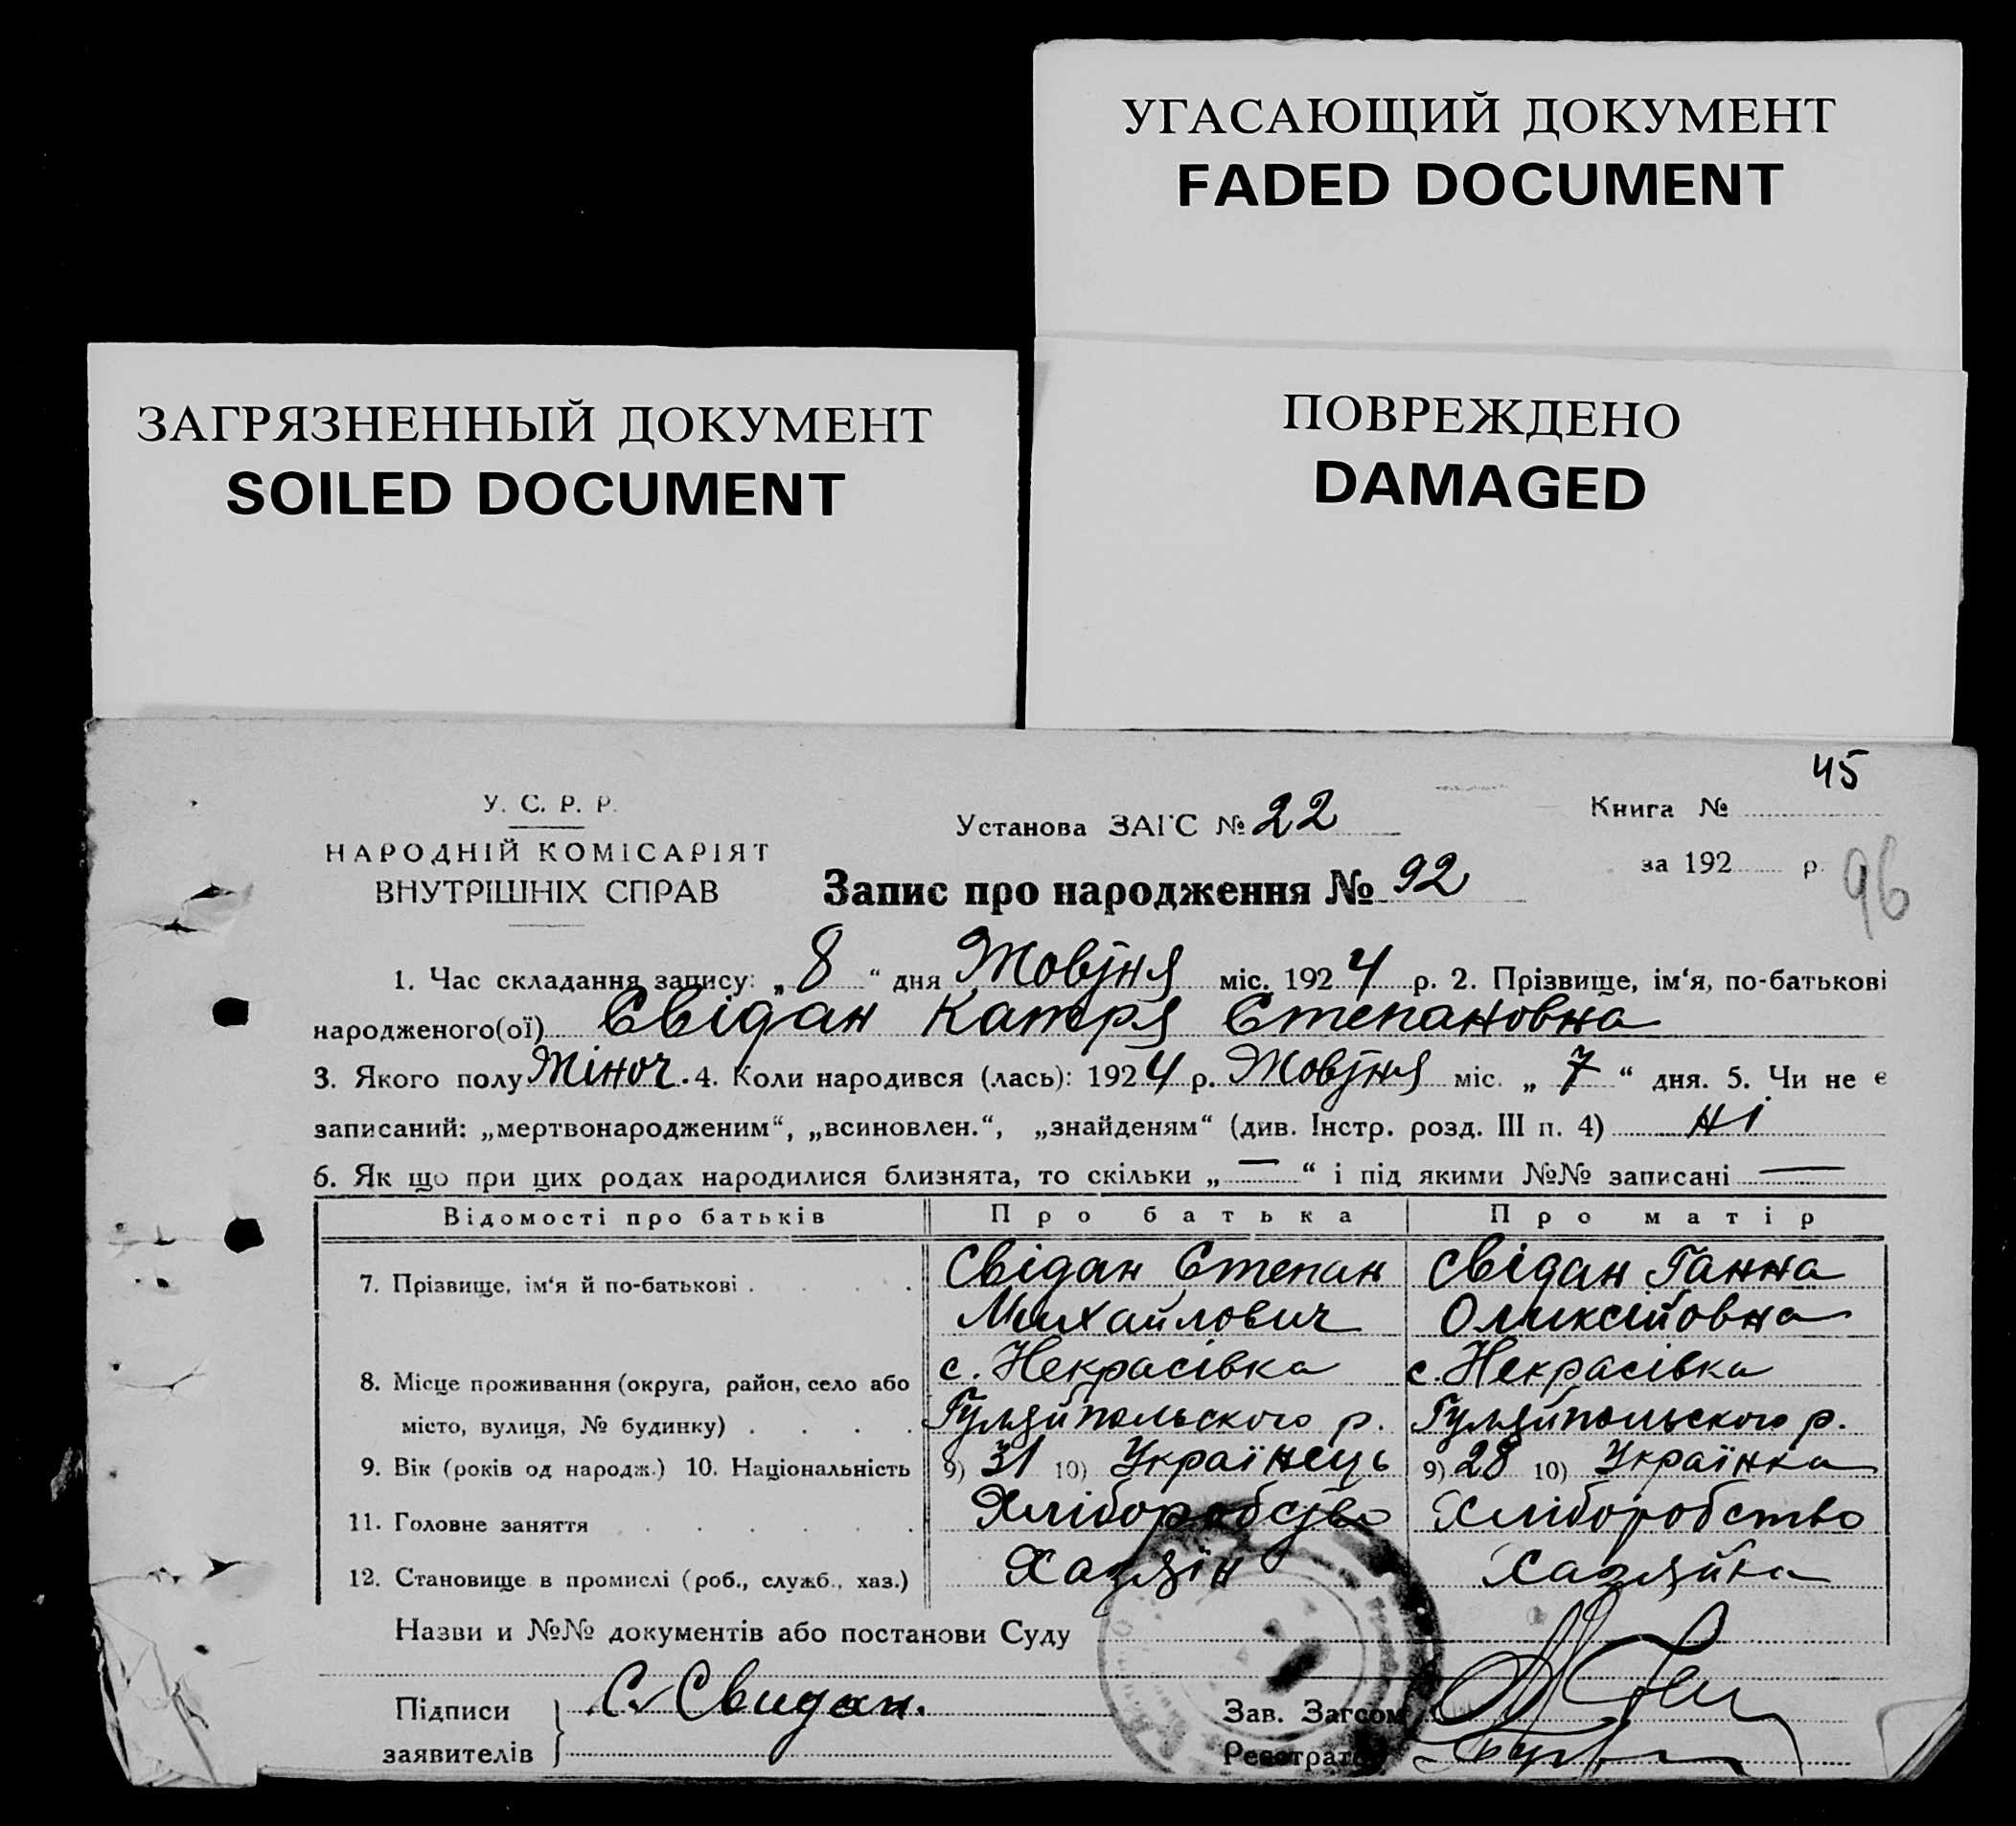 УГАСАЮЩИЙ ДОКУМЕНТ
FADED DOCUMENT
ЗАГРЯЗНЕННЫЙ ДОКУМЕНТ
SOILED DOCUMENT
ПОВРЕЖДЕНО
DAMAGED
45
У. С. Р. Р.
НАРОДНІЙ КОМІСАРІЯТ
ВНУТРІШНІХ СПРАВ
Установа ЗАГС № 22
Книга №
за 192 р.
96
Запис про народження № 92
1. Час складання запису: „ 8 “ дня Жовтня міс. 192 4 р. 2. Прізвище, ім‘я, по-батькові
народженого(ої) Свідан Катря Степановна
3. Якого полу Жіноч. 4. Коли народився (лась): 192 4 р. Жовтня міс. „ 7 “ дня. 5. Чи не є
записаний: „мертвонародженим“, „всиновлен.“, „знайденям“ (див. Інстр. розд. III п. 4) ні
6. Як що при цих родах народилися близнята, то скільки „ — “ і під якими №№ записані —
Відомості про батьків Про батька Про матір
7. Прізвище, ім‘я й по-батькові . . . . Свідан Степан Свідан Ганна
Михайлович Оликсійовна
с. Некрасівка с. Некрасівка
8. Місце проживання (округа, район, село або
місто, вулиця, № будинку) . . . . Гуляйпольского р. Гуляйпольского р.
9. Вік (років од народж.) 10. Національність 9) 31 10) Українець 9) 28 10) Українка
11. Головне заняття . . . . . . Хліборобство Хліборобство
12. Становище в промислі (роб., служб., хаз.) Хазяїн Хазяйка
Назви и №№ документів або постанови Суду
Підписи
заявителів
С. Свидан.
Зав. Загсом
Реєстратор